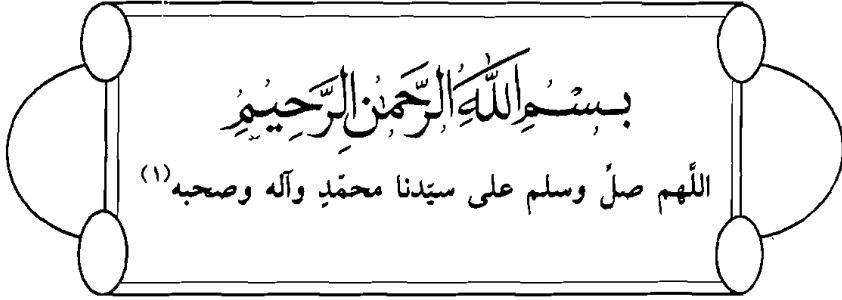 بسم الله الرحمن الرحيم
اللَّهم صلِّ وسلم على سيّدنا محمّدٍ وآله وصحبه(١)